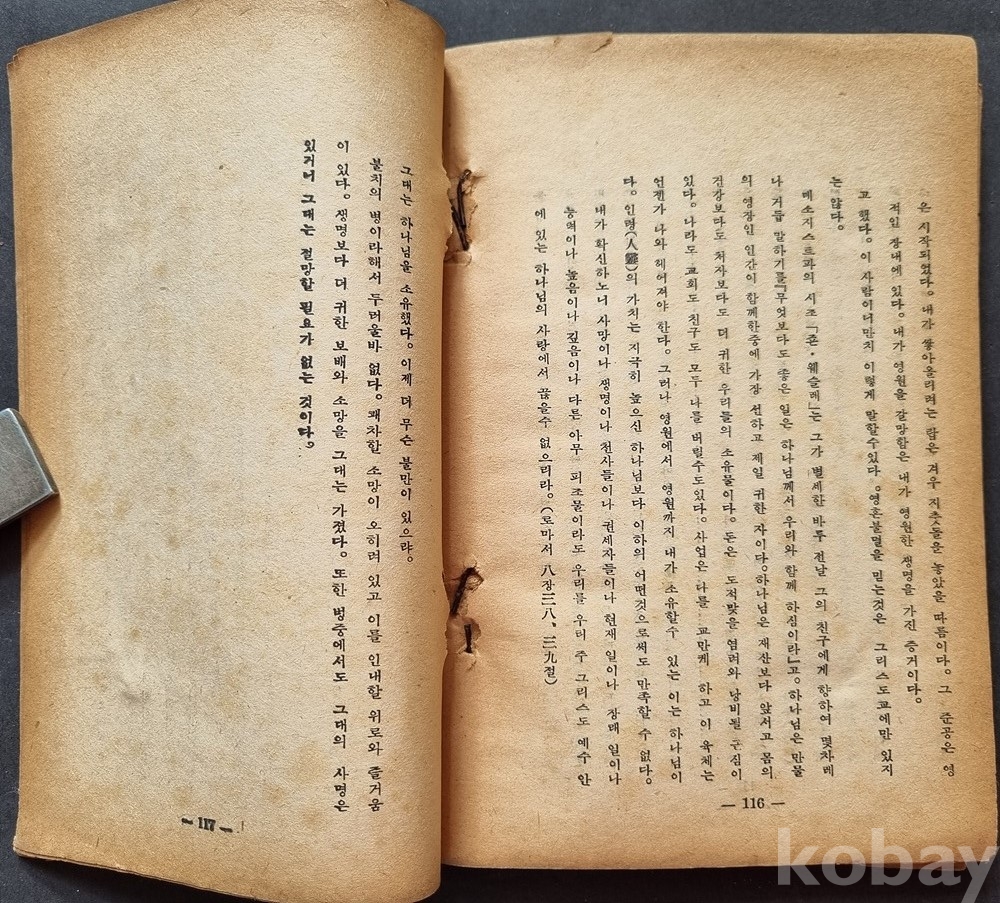 은 시작되었다。내가 쌓아올리려는 탑은 겨우 지춧돌을 놓았을 따름이다。그 준공은 영
적인 장내에 있다。내가 영원을 갈망함은 내가 영원한 생명을 가진 증거이다。
고 했다。이 사람이너만치 이렇게 말할수있다。영혼불멸을 믿는것은 그리스도교에만 있지
는 않다。
메소지스트파의 시조「죤・웨슬레」는 그가 별세한 바투 전날 그의 친구에게 향하여 몇차레
나 거듭 말하기를『무엇보다도 좋은 일은 하나님께서 우리와 함께 하심이라』고。하나님은 만물
의 영장인 인간이 함께한중에 가장 선하고 제일 귀한 자이다。하나님은 재산보다 앞서고 몸의
건강보다도 처자보다도 더 귀한 우리들의 소유물이다。돈은 도적맞을 염려와 낭비될 근심이
있다。나라도 교회도 친구도 모두 나를 버릴수도있다。사업은 나를 교만케 하고 이 육체는
언젠가 나와 헤어져야 한다。그러나 영원에서 영원까지 내가 소유할수 있는 이는 하나님이
다。인령(人靈)의 가치는 지극히 높으신 하나님보다 이하의 어떤것으로써도 만족할 수 없다。
내가 확신하노니 사망이나 생명이나 천사들이나 권세자들이나 현재 일이나 장래 일이나
능력이나 높음이나 깊음이나 다른 아무 피조물이라도 우리를 우리 주 그리스도 예수 안
에 있는 하나님의 사랑에서 끊을수 없으리라。(로마서 八장三八、三九절)
— 116 —
그대는 하나님을 소유했다。이제 더 무슨 불만이 있으랴。
불치의 병이라해서 두려울바 없다。쾌차할 소망이 오히려 있고 이를 인내할 위로와 즐거움
이 있다。생명보다 더 귀한 보배와 소망을 그대는 가졌다。또한 병중에서도 그대의 사명은
있거니 그대는 절망할 필요가 없는 것이다。
— 117 —
kobay